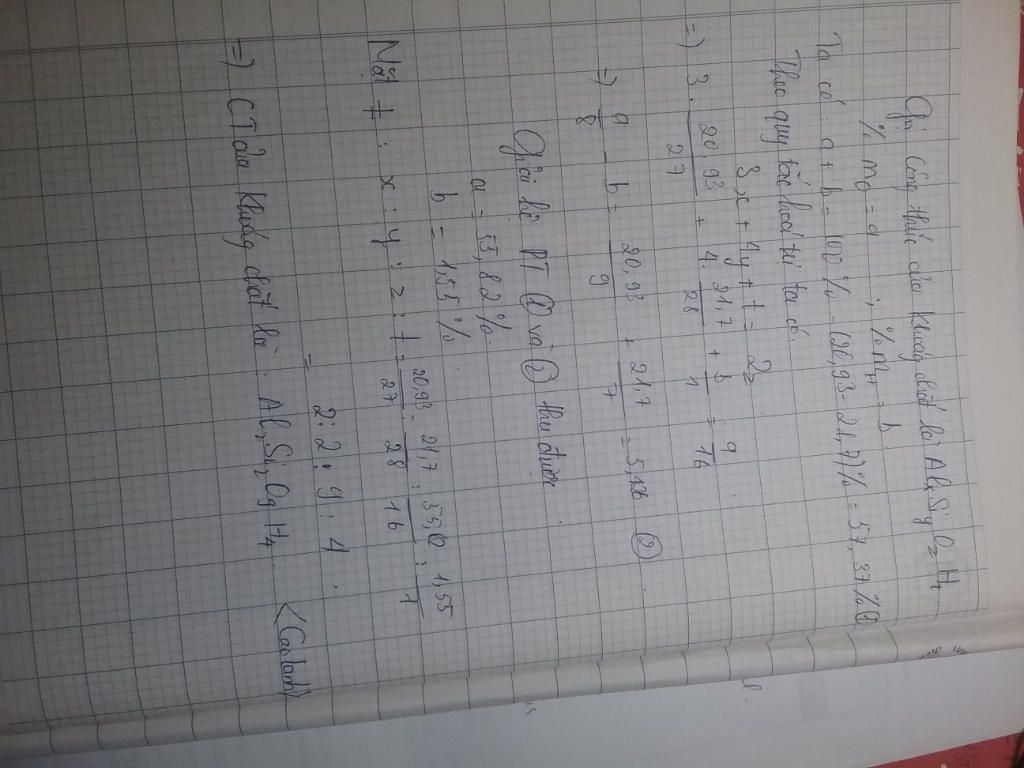 Gọi công thức của khoáng chất là Alx Siy Oz Ht
% mO = a ; % mH = b
Ta có: a + b = 100% - (20,93 - 21,7)% = 57,37% ①
Theo quy tắc hoá trị ta có
3x + 4y + t = 2z
=) 3 . 20,93/27 + 4. 21,7/28 + b/1 = a/16
=) a/8 - b = 20,93/9 + 21,7/7 = 5,426 ②
Giải hệ PT ① và ② thu được
a = 55,82%
b = 1,55%
Mặt ≠ : x : y : z : t = 20,93/27 : 21,7/28 : 55,82/16 : 1,55/1
= 2 : 2 : 9 : 4 .
=) CT của khoáng chất là : Al2 Si2 O9 H4
(Caolanh)